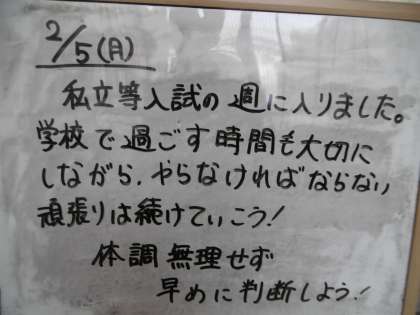 2/5(月)
私立等入試の週に入りました。
学校で過ごす時間も大切に
しながら、やらなければならない
頑張りは続けていこう!
体調無理せず
早めに判断しよう!